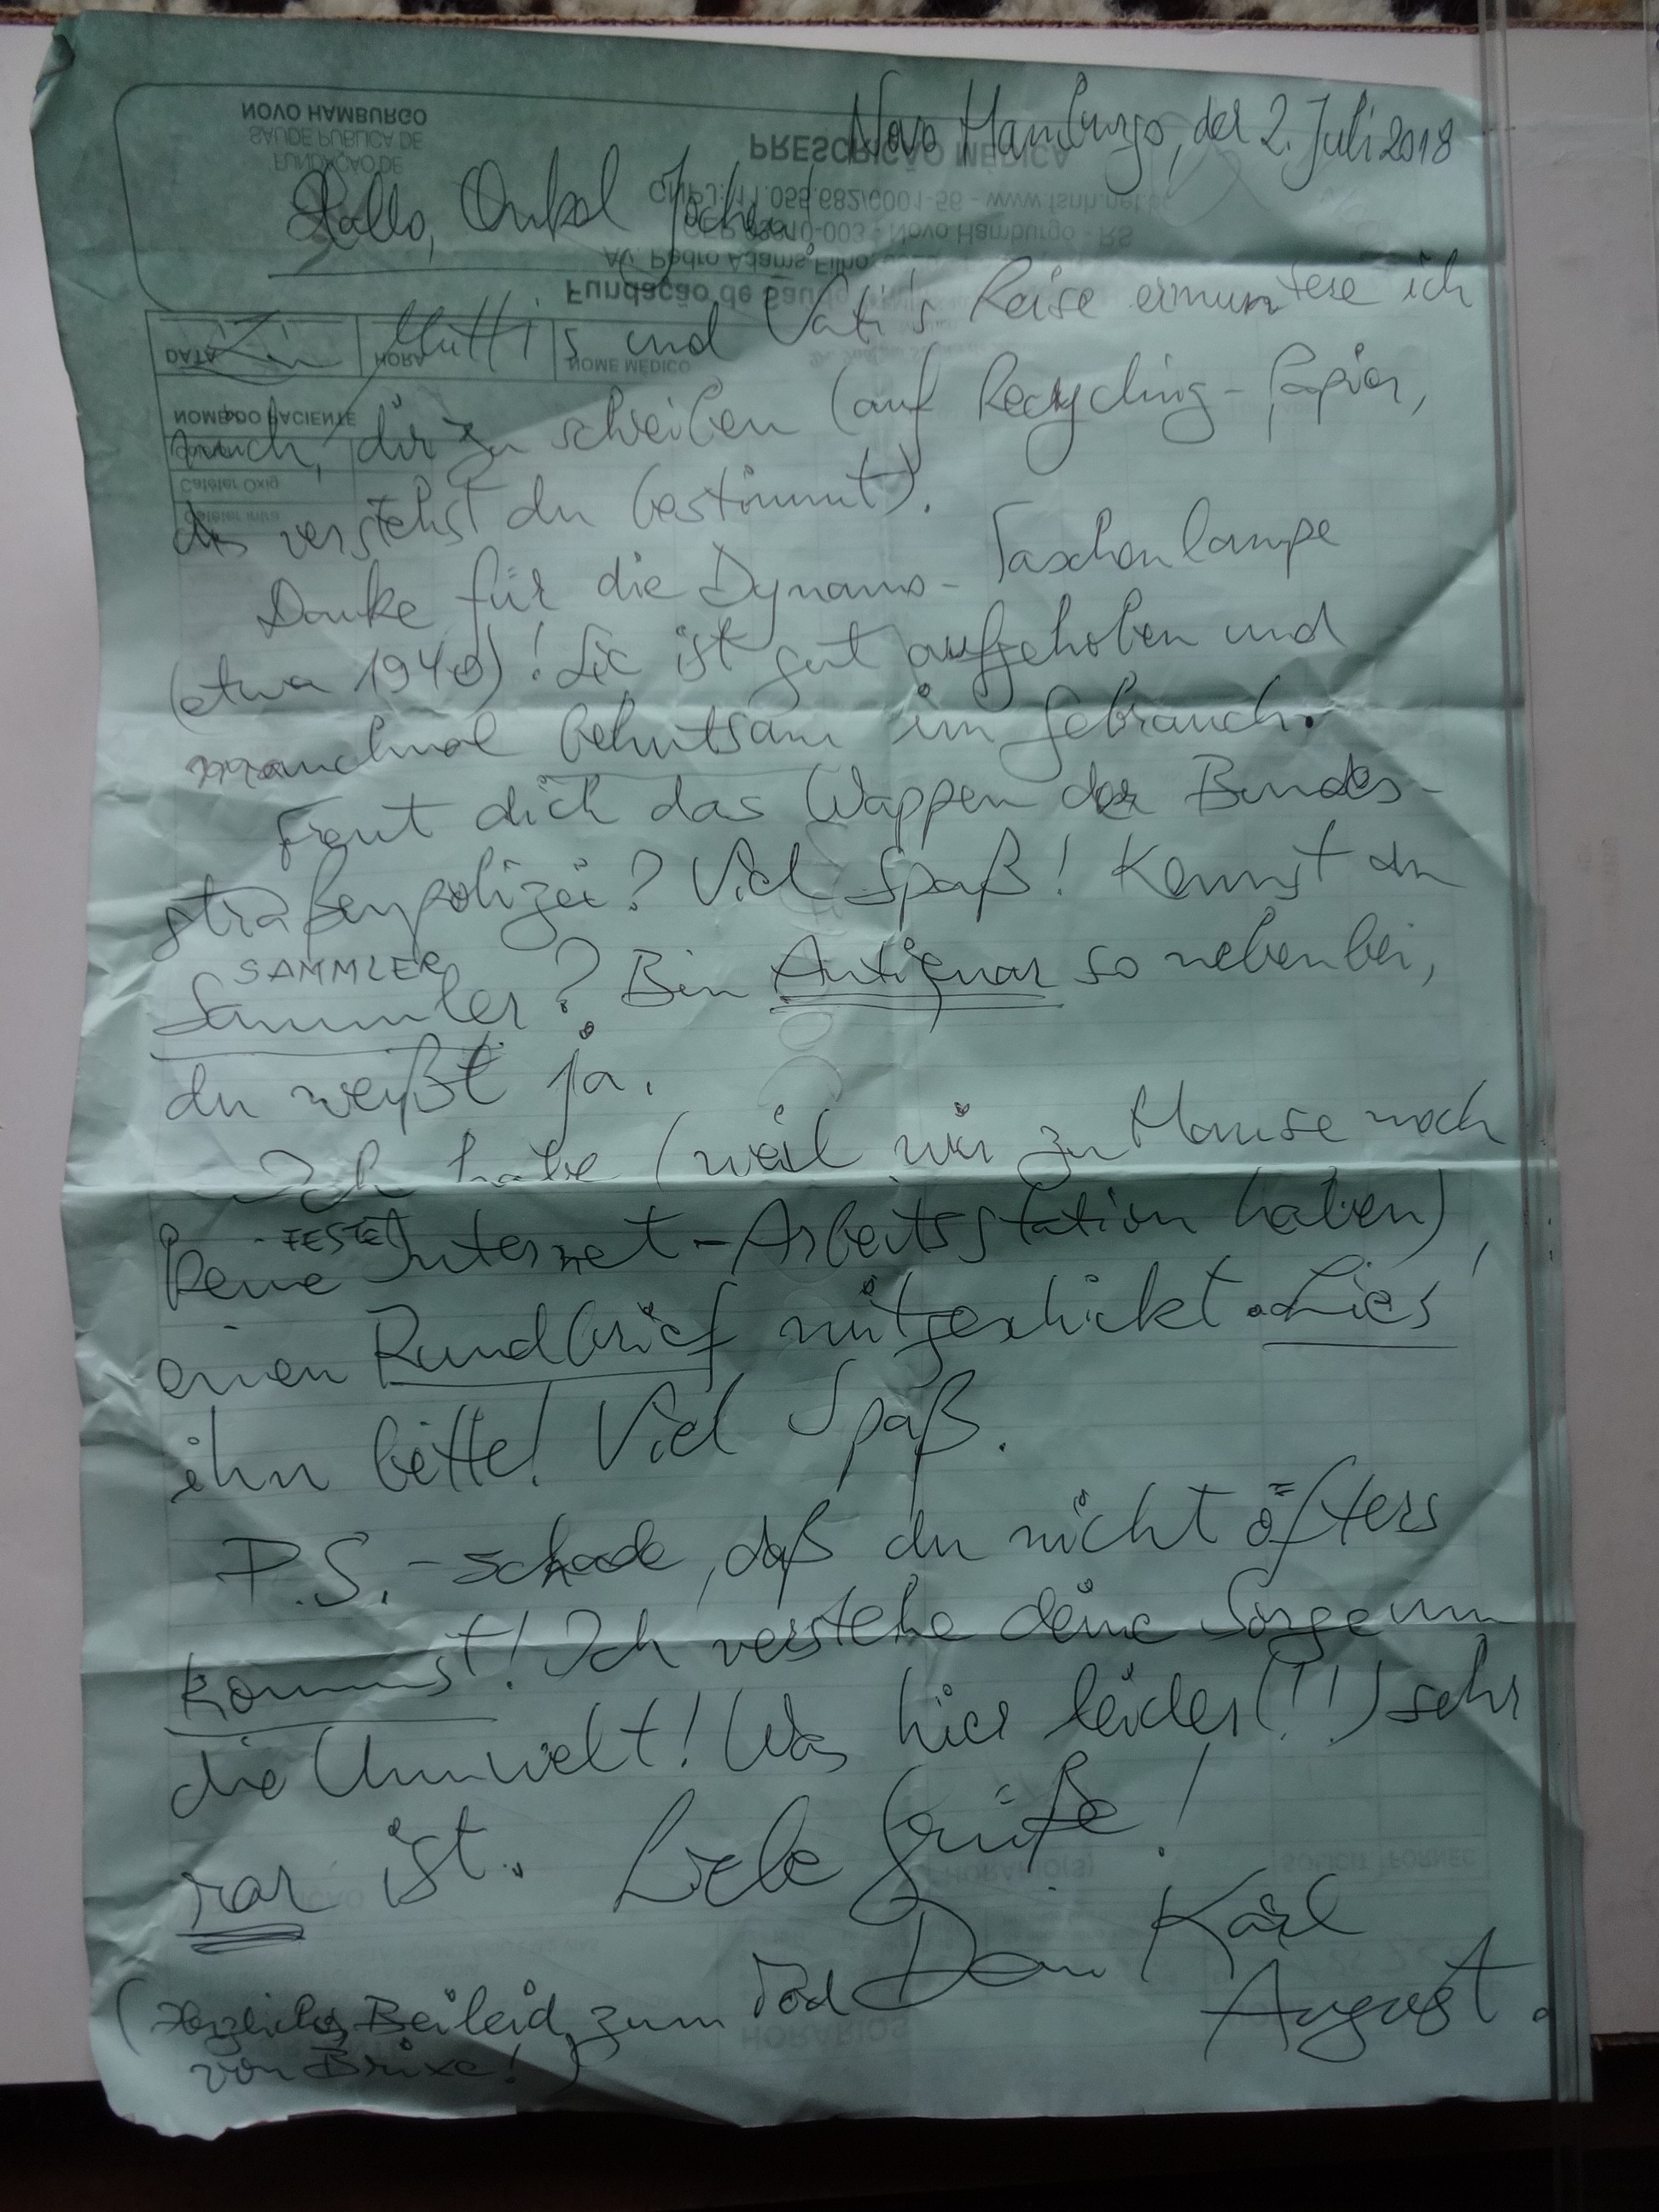 Novo Hamburgo, der 2. Juli 2018
Hallo, Onkel Jochen!
Zu Mutti's und Vati's Reise ermuntere ich
mich, dir zu schreiben (auf Recycling-Papier,
das verstehst du bestimmt).
Danke für die Dynamo-Taschenlampe
(etwa 1940)! Sie ist gut aufgehoben und
manchmal behutsam im Gebrauch.
Freut dich das Wappen der Bundes-
straßenpolizei? Viel Spaß! Kennst du
SAMMLER
Sammler? Bin Antiquar so nebenbei,
du weißt ja.
Ich habe (weil wir zu Hause noch
keine FESTE Internet-Arbeitsstation haben),
einen Rundbrief mitgeschickt. Lies
ihn bitte! Viel Spaß.
P.S. - schade, daß du nicht öfters
kommst! Ich verstehe deine Sorge um
die Umwelt! Was hier leider (!!) sehr
rar ist. Liebe Grüße!
Dein Karl
August.
(Herzliches Beileid zum Tod
von Brixe!)
NOVO HAMBURGO
SAÚDE PÚBLICA DE
FUNDAÇÃO DE
PRESCRIÇÃO MÉDICA
CNPJ: 11.055.682/0001-56 - www.fsnh.net.br
-003 - Novo Hamburgo - RS
Av. Pedro Adams Filho,
Fundação de Saúde
DATA HORA NOME MÉDICO
NOME DO PACIENTE
Cateter Oxig
HORÁRIO(S)
HORÁRIOS